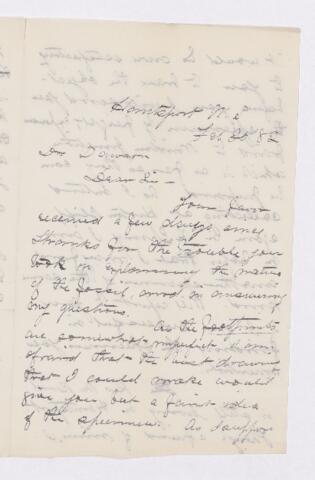 Hantsport N.S
Feb 20 82
Dr Dawson
Dear Sir -
Your favor
received a few days since
thanks for the trouble you
took in explaining the nature
of the fossil, and in answering
my questions.
As the footprints
are somewhat imperfect I am
afraid that the best drawing
that I could make would
give you but a faint idea
of the specimen. As I suppose